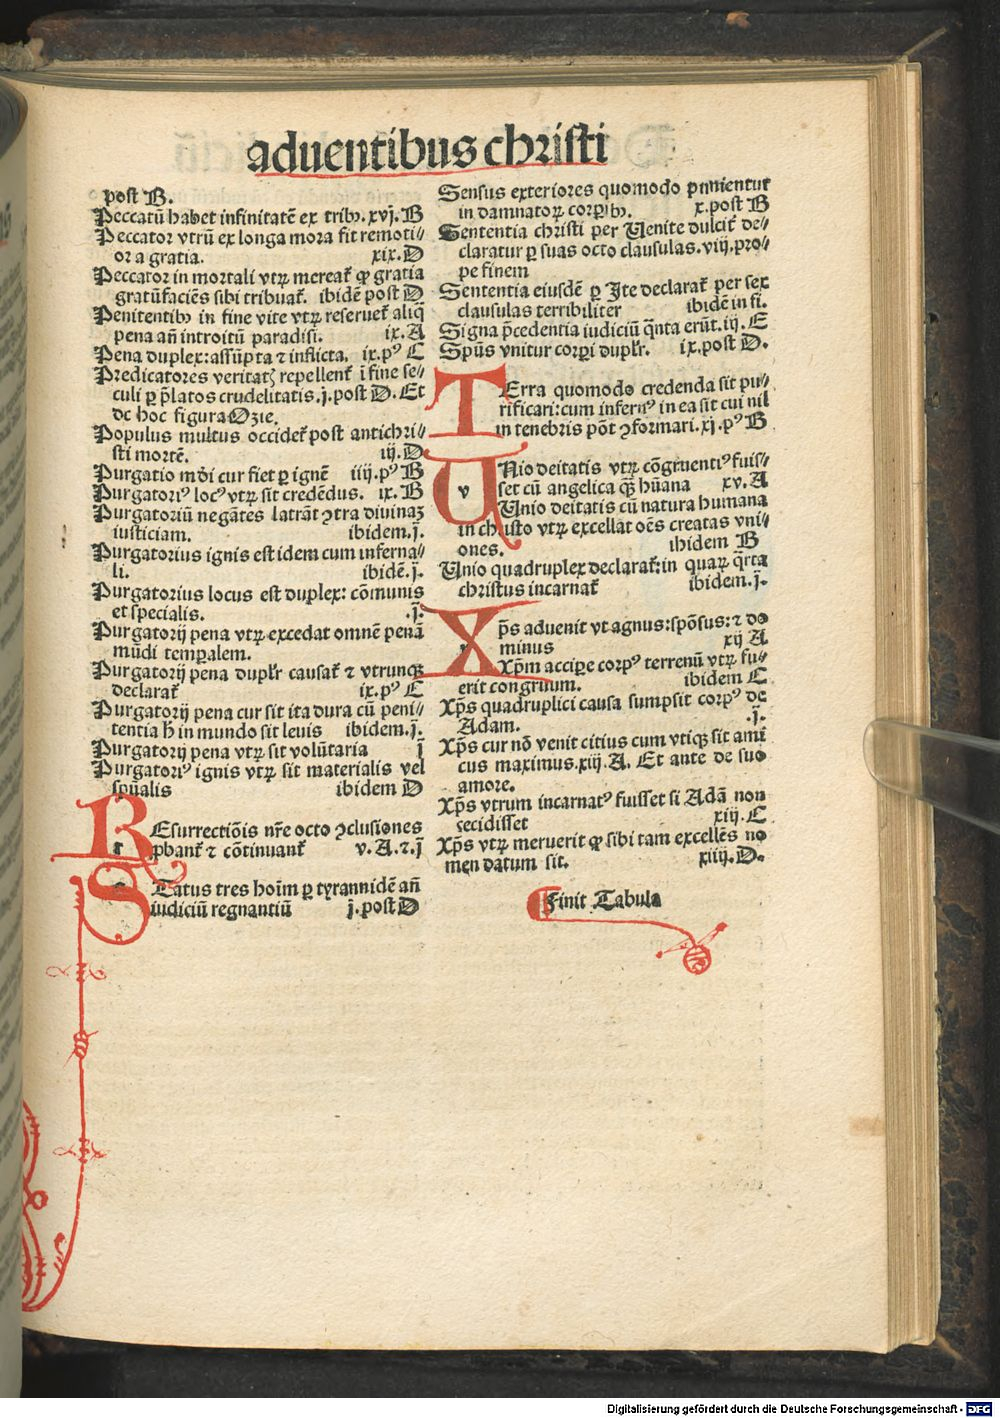 aduentibus christi
post B.
Peccatū habet infinitatē ex tribꝫ. xvj. B
Peccator vtrū ex longa mora fit remoti⸗
or a gratia. xix. D
Peccator in mortali vtꝝ mereaꝉ ꝙ gratia
gratū faciēs sibi tribuaꝉ. ibidē post D
Penitentibꝫ in fine vite vtꝝ reserueꝉ aliq̄
pena añ introitū paradisi. ix. A
Pena duplex: assūpta ⁊ inflicta. ix. pꝰ C
Predicatores veritatꝭ repellenꝉ ī fine se⸗
culi ꝑ p̄latos crudelitatis. j. post D. Et
de hoc figura Ozie.
Populus multus occideꝉ post antichri⸗
sti mortē. iij. D
Purgatio mōi cur fiet ꝑ ignē iiij. pꝰ B
Purgatoriꝰ locꝰ vtꝝ sit credēdus. ix. B
Purgatoriū negātes latrāt ꝯtra diuinaꝫ
iusticiam. ibidem. j̄.
Purgatorius ignis est idem cum inferna⸗
li. ibidē. j̄.
Purgatorius locus est duplex: cōmunis
et specialis. .j̄.
Purgatorij pena vtꝝ excedat omnē penā
mūdi temꝑalem.
Purgatorij pena duplr̄ causaꝉ ⁊ vtrunqꝫ
declaraꝉ ix. pꝰ C
Purgatorij pena cur sit ita dura cū peni⸗
tentia h̄ in mundo sit leuis ibidem. j̄.
Purgatorij pena vtꝝ sit volūtaria j̄
Purgatoriꝰ ignis vtꝝ sit materialis vel
spūalis ibidem D
REsurrectiōis nr̄e octo ꝯclusiones
ꝓbanꝉ ⁊ cōtinuanꝉ v. A. ⁊. j̄
STatus tres hoīm ꝑ tyrannidē añ
iudiciū regnantiū j. post D
Sensus exteriores quomodo punientur
in damnatoꝝ corꝑibꝫ. x. post B
Sententia christi per Uenite dulciꝉ de⸗
claratur ꝑ suas octo clausulas. viij. pro⸗
pe finem
Sententia eiusdē ꝑ Ite declaraꝉ per sex
clausulas terribiliter ibidē in fi.
Signa p̄cedentia iudiciū q̄nta erūt. iij. E
Spūs vnitur corꝑi duplr̄. ix. post D.
TErra quomodo credenda sit pu⸗
rificari: cum infernꝰ in ea sit cui nil
in tenebris pōt ꝯformari. xj. pꝰ B
UNio deitatis vtꝝ cōgruentiꝰ fuis⸗
set cū angelica qꝫ hūana xv. A
Unio deitatis cū natura humana
in christo vtꝝ excellat oēs creatas vni⸗
ones. ibidem B
Unio quadruplex declaraꝉ: in quaꝝ q̄rta
christus incarnaꝉ ibidem. j̄.
Xp̄s aduenit vt agnus: spōsus: ⁊ do
minus xij A
Xp̄m accipe corpꝰ terrenū vtꝝ fu⸗
erit congruum. ibidem C
Xp̄s quadruplici causa sumpsit corpꝰ de
Adam. .j̄.
Xp̄s cur nō venit citius cum vtiqꝫ sit ami
cus maximus. xiij. A. Et ante de suo
amore.
Xp̄s vtrum incarnatꝰ fuisset si Adā non
cecidisset xiij. C
Xp̄s vtꝝ meruerit ꝙ sibi tam excellēs no
men datum sit. xiiij. D.
Finit Tabula
Digitalisierung gefördert durch die Deutsche Forschungsgemeinschaft - DFG